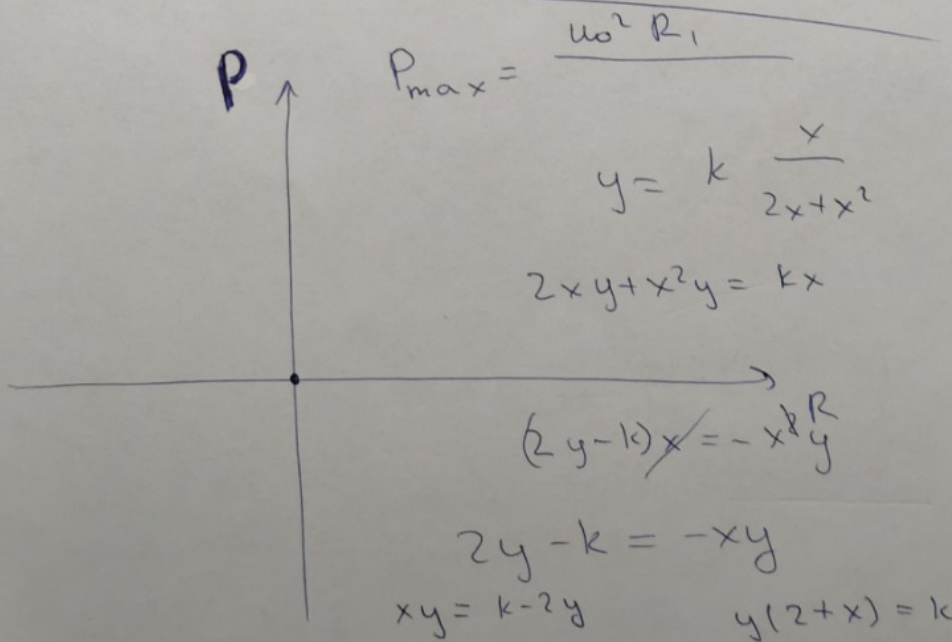 P
P_max = u₀² R₁
y = k x / (2x + x²)
2xy + x²y = kx
R
(2y - k)x = - x y
2y - k = -xy
xy = k - 2y
y(2 + x) = k